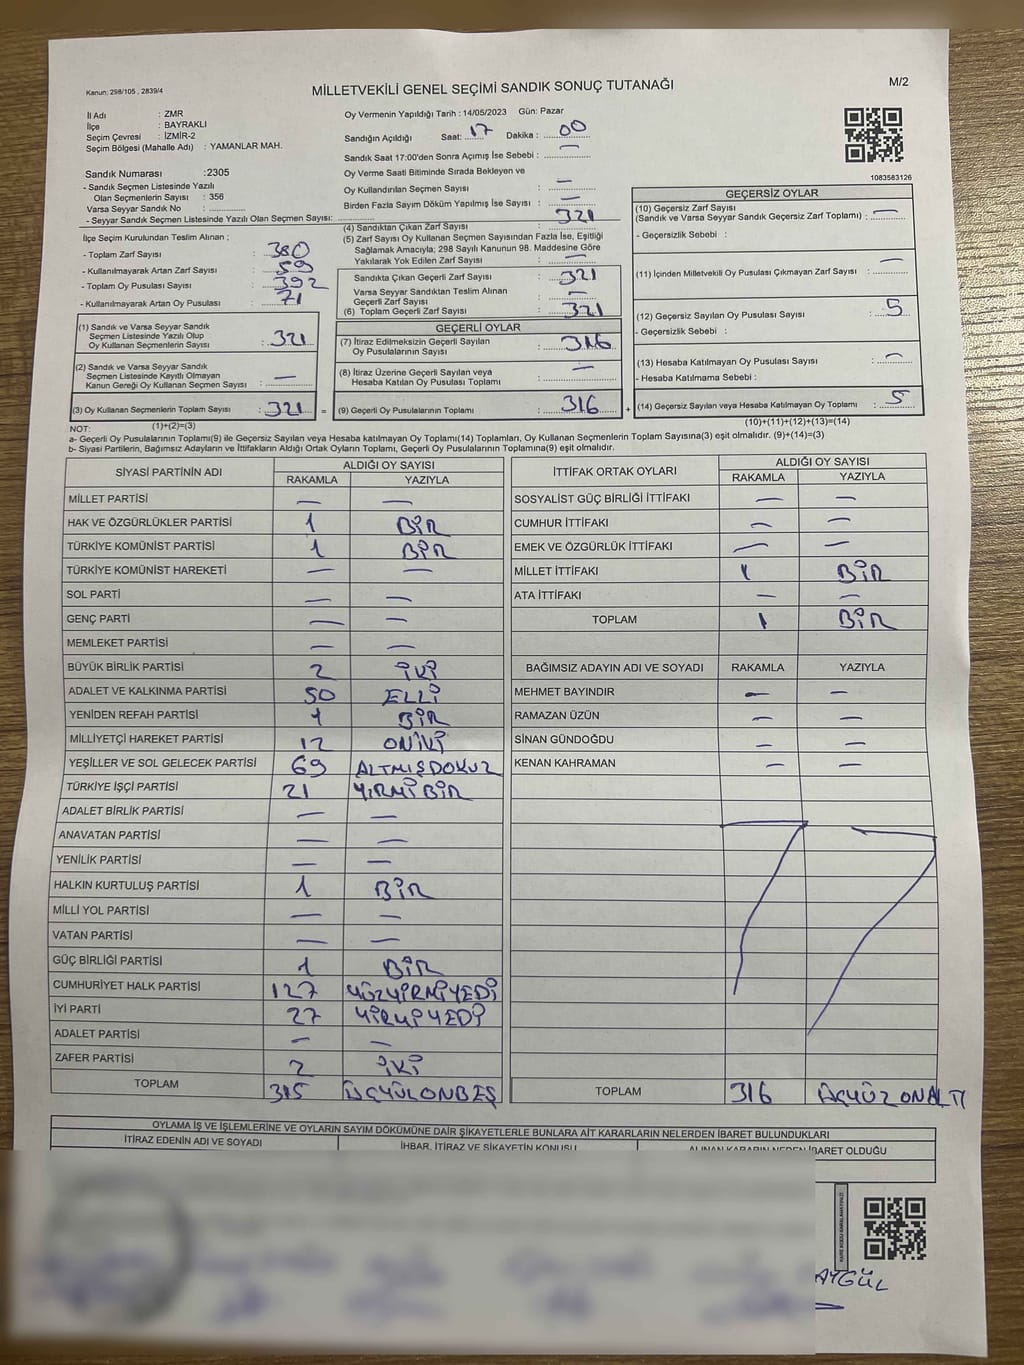 Kanun: 298/105 , 2839/4
MİLLETVEKİLİ GENEL SEÇİMİ SANDIK SONUÇ TUTANAĞI
M/2
İl Adı : ZMR
İlçe : BAYRAKLI
Seçim Çevresi : İZMİR-2
Seçim Bölgesi (Mahalle Adı) : YAMANLAR MAH.
Sandık Numarası :2305
- Sandık Seçmen Listesinde Yazılı
Olan Seçmenlerin Sayısı : 356
Varsa Seyyar Sandık No :
- Seyyar Sandık Seçmen Listesinde Yazılı Olan Seçmen Sayısı:
İlçe Seçim Kurulundan Teslim Alınan ;
- Toplam Zarf Sayısı : 380
- Kullanılmayarak Artan Zarf Sayısı : 59
- Toplam Oy Pusulası Sayısı : 392
- Kullanılmayarak Artan Oy Pusulası : 71
(1) Sandık ve Varsa Seyyar Sandık
Seçmen Listesinde Yazılı Olup
Oy Kullanan Seçmenlerin Sayısı : 321
(2) Sandık ve Varsa Seyyar Sandık
Seçmen Listesinde Kayıtlı Olmayan
Kanun Gereği Oy Kullanan Seçmen Sayısı : —
(3) Oy Kullanan Seçmenlerin Toplam Sayısı : 321 =
(1)+(2)=(3)
Oy Vermenin Yapıldığı Tarih : 14/05/2023 Gün: Pazar
Sandığın Açıldığı Saat: 17 Dakika : 00
Sandık Saat 17:00'den Sonra Açımış İse Sebebi : —
Oy Verme Saati Bitiminde Sırada Bekleyen ve
Oy Kullandırılan Seçmen Sayısı : —
Birden Fazla Sayım Döküm Yapılmış İse Sayısı : —
(4) Sandıktan Çıkan Zarf Sayısı : 321
(5) Zarf Sayısı Oy Kullanan Seçmen Sayısından Fazla İse, Eşitliği
Sağlamak Amacıyla; 298 Sayılı Kanunun 98. Maddesine Göre
Yakılarak Yok Edilen Zarf Sayısı : —
Sandıkta Çıkan Geçerli Zarf Sayısı : 321
Varsa Seyyar Sandıktan Teslim Alınan
Geçerli Zarf Sayısı : —
(6) Toplam Geçerli Zarf Sayısı : 321
GEÇERLİ OYLAR
(7) İtiraz Edilmeksizin Geçerli Sayılan
Oy Pusulalarının Sayısı : 316
(8) İtiraz Üzerine Geçerli Sayılan veya
Hesaba Katılan Oy Pusulası Toplamı : —
(9) Geçerli Oy Pusulalarının Toplamı : 316 +
1083583126
GEÇERSİZ OYLAR
(10) Geçersiz Zarf Sayısı
(Sandık ve Varsa Seyyar Sandık Geçersiz Zarf Toplamı) : —
- Geçersizlik Sebebi :
(11) İçinden Milletvekili Oy Pusulası Çıkmayan Zarf Sayısı : —
(12) Geçersiz Sayılan Oy Pusulası Sayısı : 5
- Geçersizlik Sebebi :
(13) Hesaba Katılmayan Oy Pusulası Sayısı : —
- Hesaba Katılmama Sebebi :
(14) Geçersiz Sayılan veya Hesaba Katılmayan Oy Toplamı : 5
(10)+(11)+(12)+(13)=(14)
NOT:
a- Geçerli Oy Pusulalarının Toplamı(9) ile Geçersiz Sayılan veya Hesaba katılmayan Oy Toplamı(14) Toplamları, Oy Kullanan Seçmenlerin Toplam Sayısına(3) eşit olmalıdır. (9)+(14)=(3)
b- Siyasi Partilerin, Bağımsız Adayların ve İttifakların Aldığı Ortak Oyların Toplamı, Geçerli Oy Pusulalarının Toplamına(9) eşit olmalıdır.
SİYASİ PARTİNİN ADI ALDIĞI OY SAYISI
RAKAMLA YAZIYLA
MİLLET PARTİSİ — —
HAK VE ÖZGÜRLÜKLER PARTİSİ 1 BİR
TÜRKİYE KOMÜNİST PARTİSİ 1 BİR
TÜRKİYE KOMÜNİST HAREKETİ — —
SOL PARTİ — —
GENÇ PARTİ — —
MEMLEKET PARTİSİ — —
BÜYÜK BİRLİK PARTİSİ 2 İKİ
ADALET VE KALKINMA PARTİSİ 50 ELLİ
YENİDEN REFAH PARTİSİ 1 BİR
MİLLİYETÇİ HAREKET PARTİSİ 12 ONİKİ
YEŞİLLER VE SOL GELECEK PARTİSİ 69 ALTMIŞDOKUZ
TÜRKİYE İŞÇİ PARTİSİ 21 YIRMİBİR
ADALET BİRLİK PARTİSİ — —
ANAVATAN PARTİSİ — —
YENİLİK PARTİSİ — —
HALKIN KURTULUŞ PARTİSİ 1 BİR
MİLLİ YOL PARTİSİ — —
VATAN PARTİSİ — —
GÜÇ BİRLİĞİ PARTİSİ 1 BİR
CUMHURİYET HALK PARTİSİ 127 YÜZYİRMİYEDİ
İYİ PARTİ 27 YİRMİYEDİ
ADALET PARTİSİ — —
ZAFER PARTİSİ 2 İKİ
TOPLAM 315 ÜÇYÜZONBEŞ
İTTİFAK ORTAK OYLARI ALDIĞI OY SAYISI
RAKAMLA YAZIYLA
SOSYALİST GÜÇ BİRLİĞİ İTTİFAKI — —
CUMHUR İTTİFAKI — —
EMEK VE ÖZGÜRLÜK İTTİFAKI — —
MİLLET İTTİFAKI 1 BİR
ATA İTTİFAKI — —
TOPLAM 1 BİR
BAĞIMSIZ ADAYIN ADI VE SOYADI RAKAMLA YAZIYLA
MEHMET BAYINDIR — —
RAMAZAN ÜZÜN — —
SİNAN GÜNDOĞDU — —
KENAN KAHRAMAN — —
TOPLAM 316 ÜÇYÜZONALTI
OYLAMA İŞ VE İŞLEMLERİNE VE OYLARIN SAYIM DÖKÜMÜNE DAİR ŞİKAYETLERLE BUNLARA AİT KARARLARIN NELERDEN İBARET BULUNDUKLARI
İTİRAZ EDENİN ADI VE SOYADI İHBAR, İTİRAZ VE ŞİKAYETİN KONUSU ALINAN KARARIN NEDEN İBARET OLDUĞU
AYGÜL